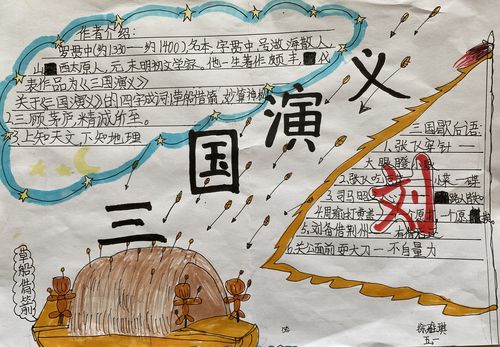 作者介绍:
罗贯中(约1330—约1400)名本,字贯中,号湖海散人,
山西太原人,元末明初文学家。他一生著作颇丰,代
表作品为《三国演义》
关于《三国演义》的四字成词:草船借箭,妙算神机
2.三顾茅庐,精诚所至。
3.上知天文,下知地理
三国演义
三国歇后语:
1.张飞穿针—
大眼瞪小眼
2.张飞吃豆芽 小菜一碟
3.司马昭 路人皆知
4.周瑜打黄盖 一个愿打,一个愿
5.刘备借荆州 有借无还
6.关公面前耍大刀—不自量力
刘
草船借箭
五一